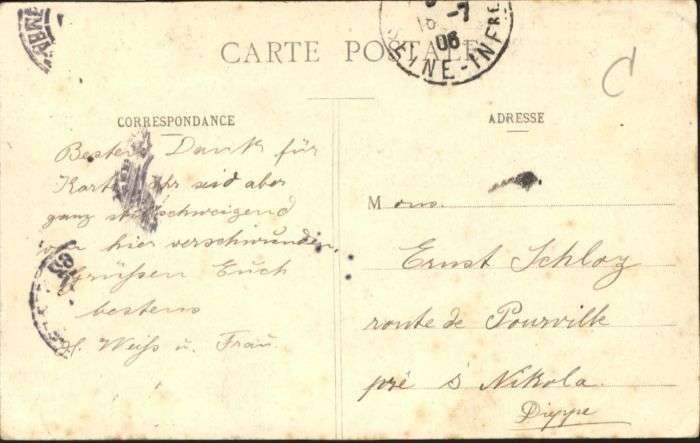 CARTE POSTALE
18 -7
06
SEINE-INFRE
C
CORRESPONDANCE
Besten Dank für
Karte Ihr seid aber
ganz stillschweigend
von hier verschwunden.
Grüßen Euch
bestens
Weiss u. Frau.
ADRESSE
M ons.
Ernst Schloz
route de Pourville
pré S Nikola.
Dieppe